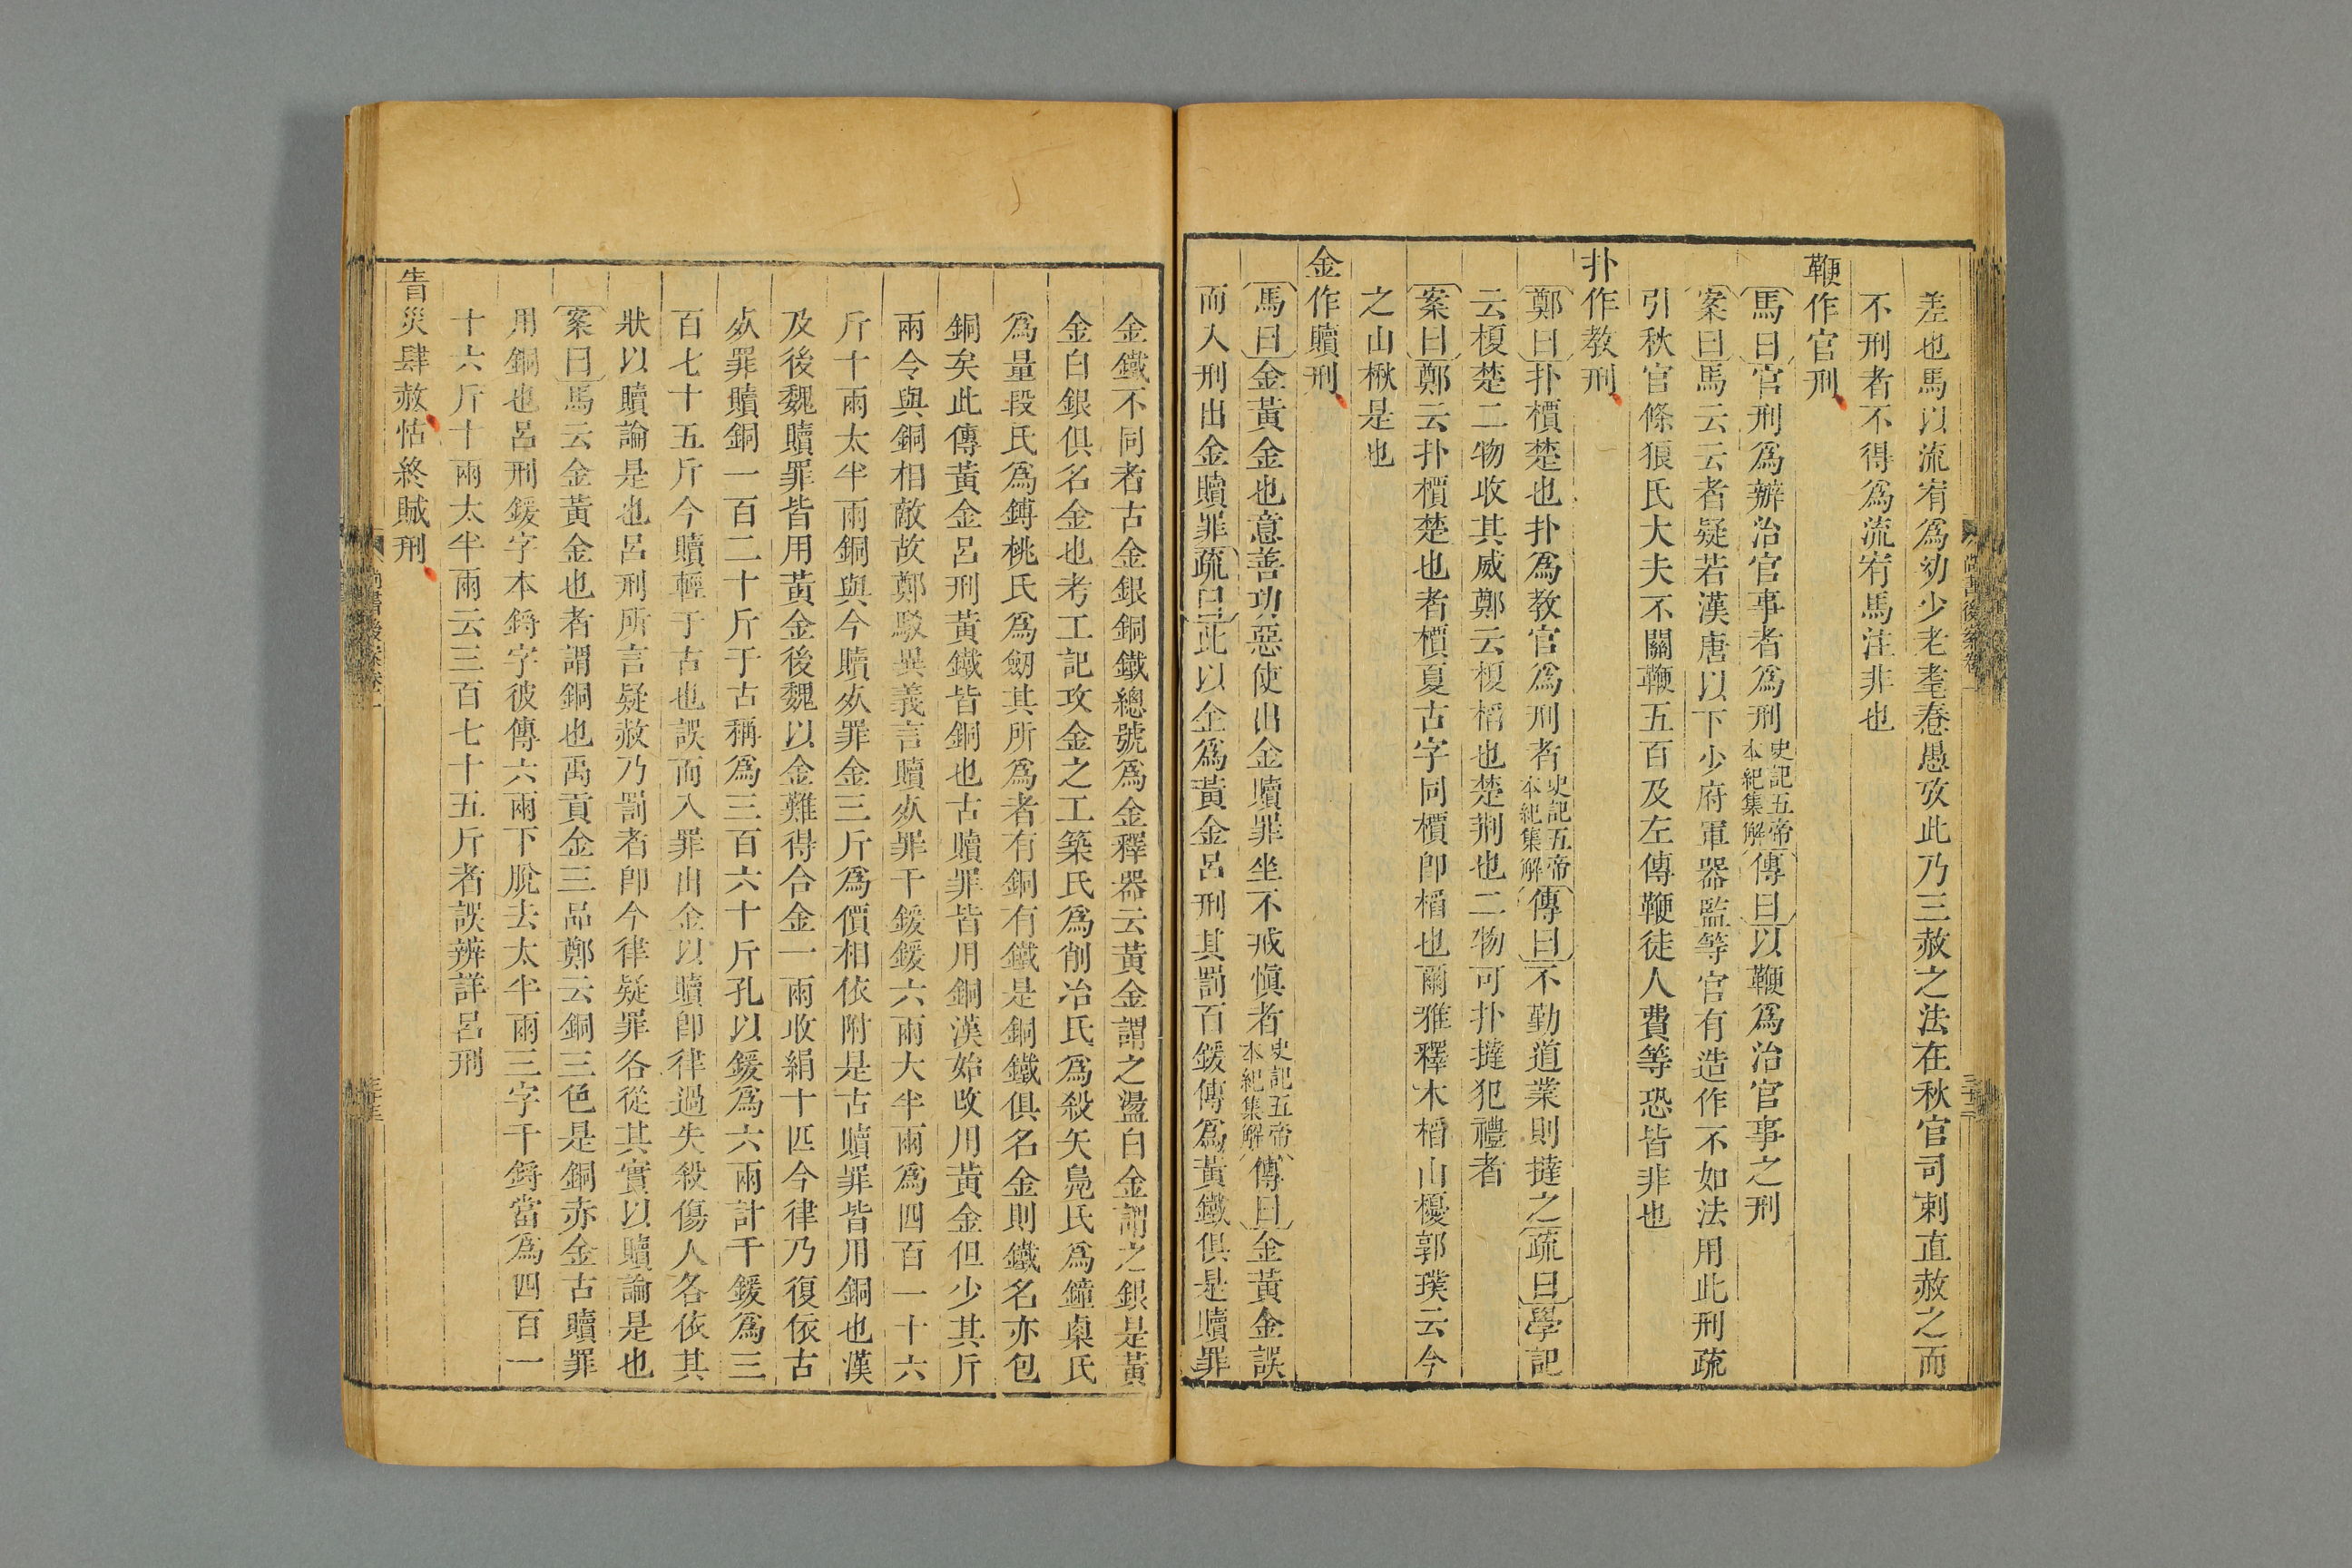 差也馬以流宥爲幼少老耄憃愚攷此乃三赦之法在秋官司刺直赦之而
不刑者不得爲流宥馬注非也
鞭作官刑
馬曰官刑爲辦治官事者爲刑史記五帝本紀集解傳曰以鞭爲治官事之刑
案曰馬云云者疑若漢唐以下少府軍器監等官有造作不如法用此刑疏
引秋官條狼氏大夫不關鞭五百及左傳鞭徒人費等恐皆非也
扑作教刑
鄭曰扑檟楚也扑爲教官爲刑者史記五帝本紀集解傳曰不勤道業則撻之疏曰學記
云榎楚二物收其威鄭云榎槄也楚荆也二物可扑撻犯禮者
案曰鄭云扑檟楚也者檟夏古字同檟卽槄也爾雅釋木槄山榎郭璞云今
之山楸是也
金作贖刑
馬曰金黃金也意善功惡使出金贖罪坐不戒慎者史記五帝本紀集解傳曰金黃金誤
而入刑出金贖罪疏曰此以金爲黃金呂刑其罰百鍰傳爲黃鐵俱是贖罪
金鐵不同者古金銀銅鐵總號爲金釋器云黃金謂之璗白金謂之銀是黃
金白銀俱名金也考工記攻金之工築氏爲削冶氏爲殺矢鳧氏爲鐘㮚氏
爲量段氏爲鎛桃氏爲劒其所爲者有銅有鐵是銅鐵俱名金則鐵名亦包
銅矣此傳黃金呂刑黃鐵皆銅也古贖罪皆用銅漢始改用黃金但少其斤
兩令與銅相敵故鄭駁異義言贖死罪千鍰鍰六兩大半兩爲四百一十六
斤十兩太半兩銅與今贖死罪金三斤爲價相依附是古贖罪皆用銅也漢
及後魏贖罪皆用黃金後魏以金難得合金一兩收絹十匹今律乃復依古
死罪贖銅一百二十斤于古稱爲三百六十斤孔以鍰爲六兩計千鍰爲三
百七十五斤今贖輕于古也誤而入罪出金以贖卽律過失殺傷人各依其
狀以贖論是也呂刑所言疑赦乃罰者卽今律疑罪各從其實以贖論是也
案曰馬云金黃金也者謂銅也禹貢金三品鄭云銅三色是銅赤金古贖罪
用銅也呂刑鍰字本鋝字彼傳六兩下脫去太半兩三字千鋝當爲四百一
十六斤十兩太半兩云三百七十五斤者誤辨詳呂刑
眚災肆赦怙終賊刑